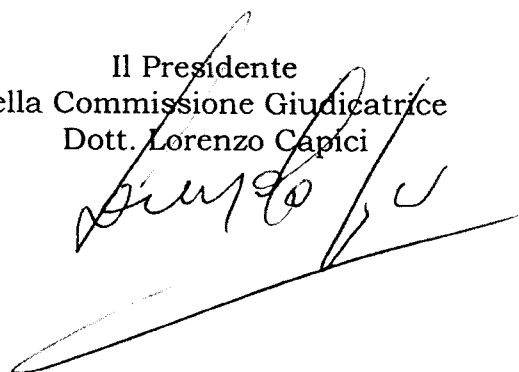 Il Presidente
ella Commissione Giudicatrice
Dott. Lorenzo Capici